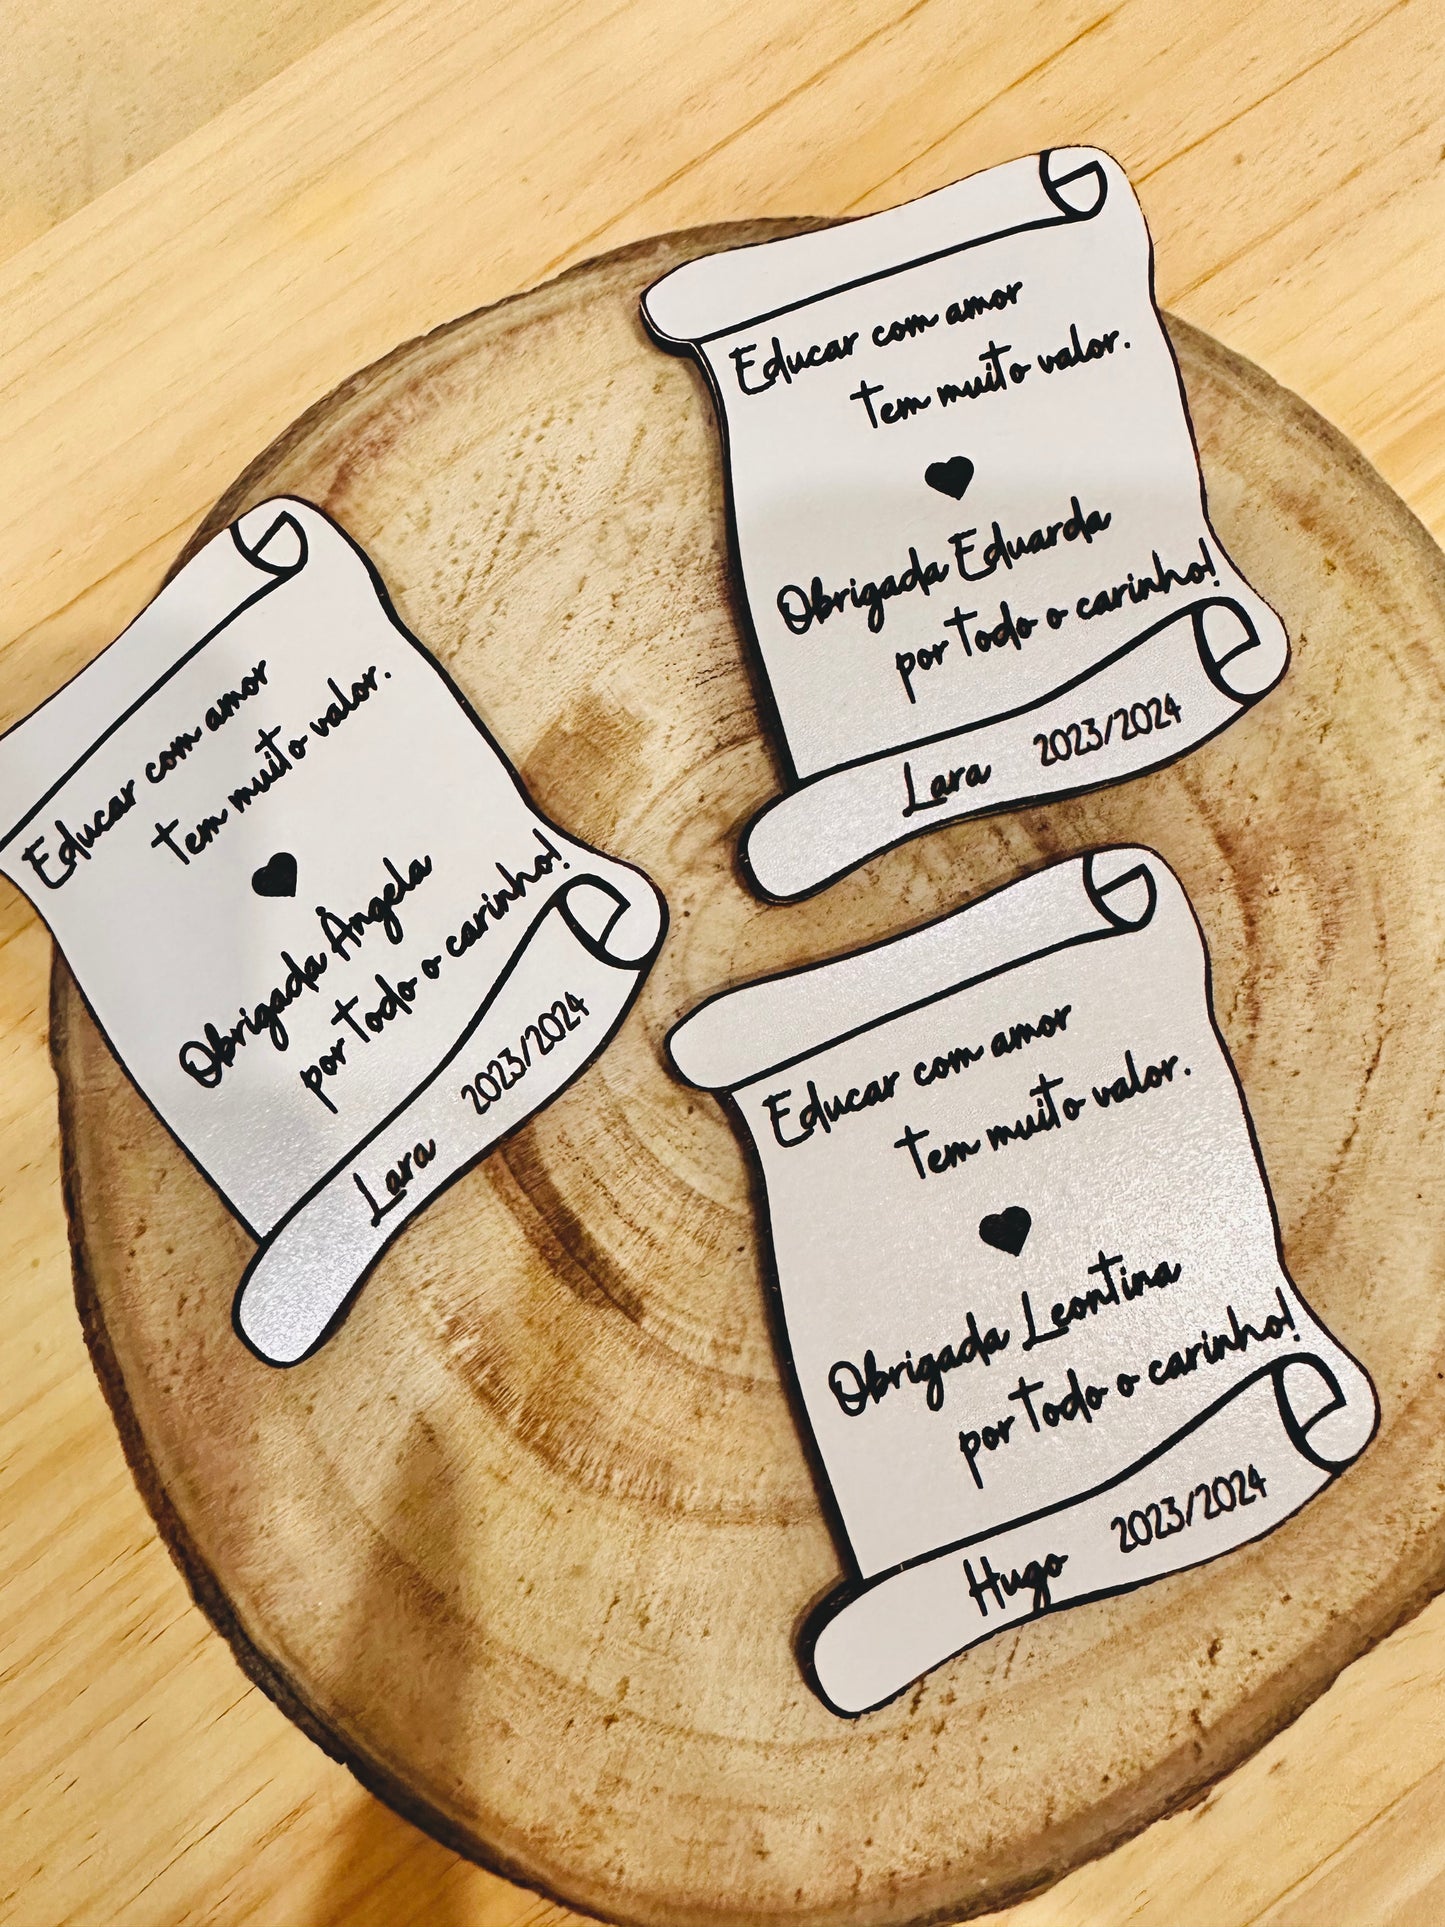 Educar com amor
tem muito valor.
Obrigada Eduarda
por todo o carinho!
Lara 2023/2024
Educar com amor
tem muito valor.
Obrigada Ângela
por todo o carinho!
Lara 2023/2024
Educar com amor
tem muito valor.
Obrigada Leontina
por todo o carinho!
Hugo 2023/2024